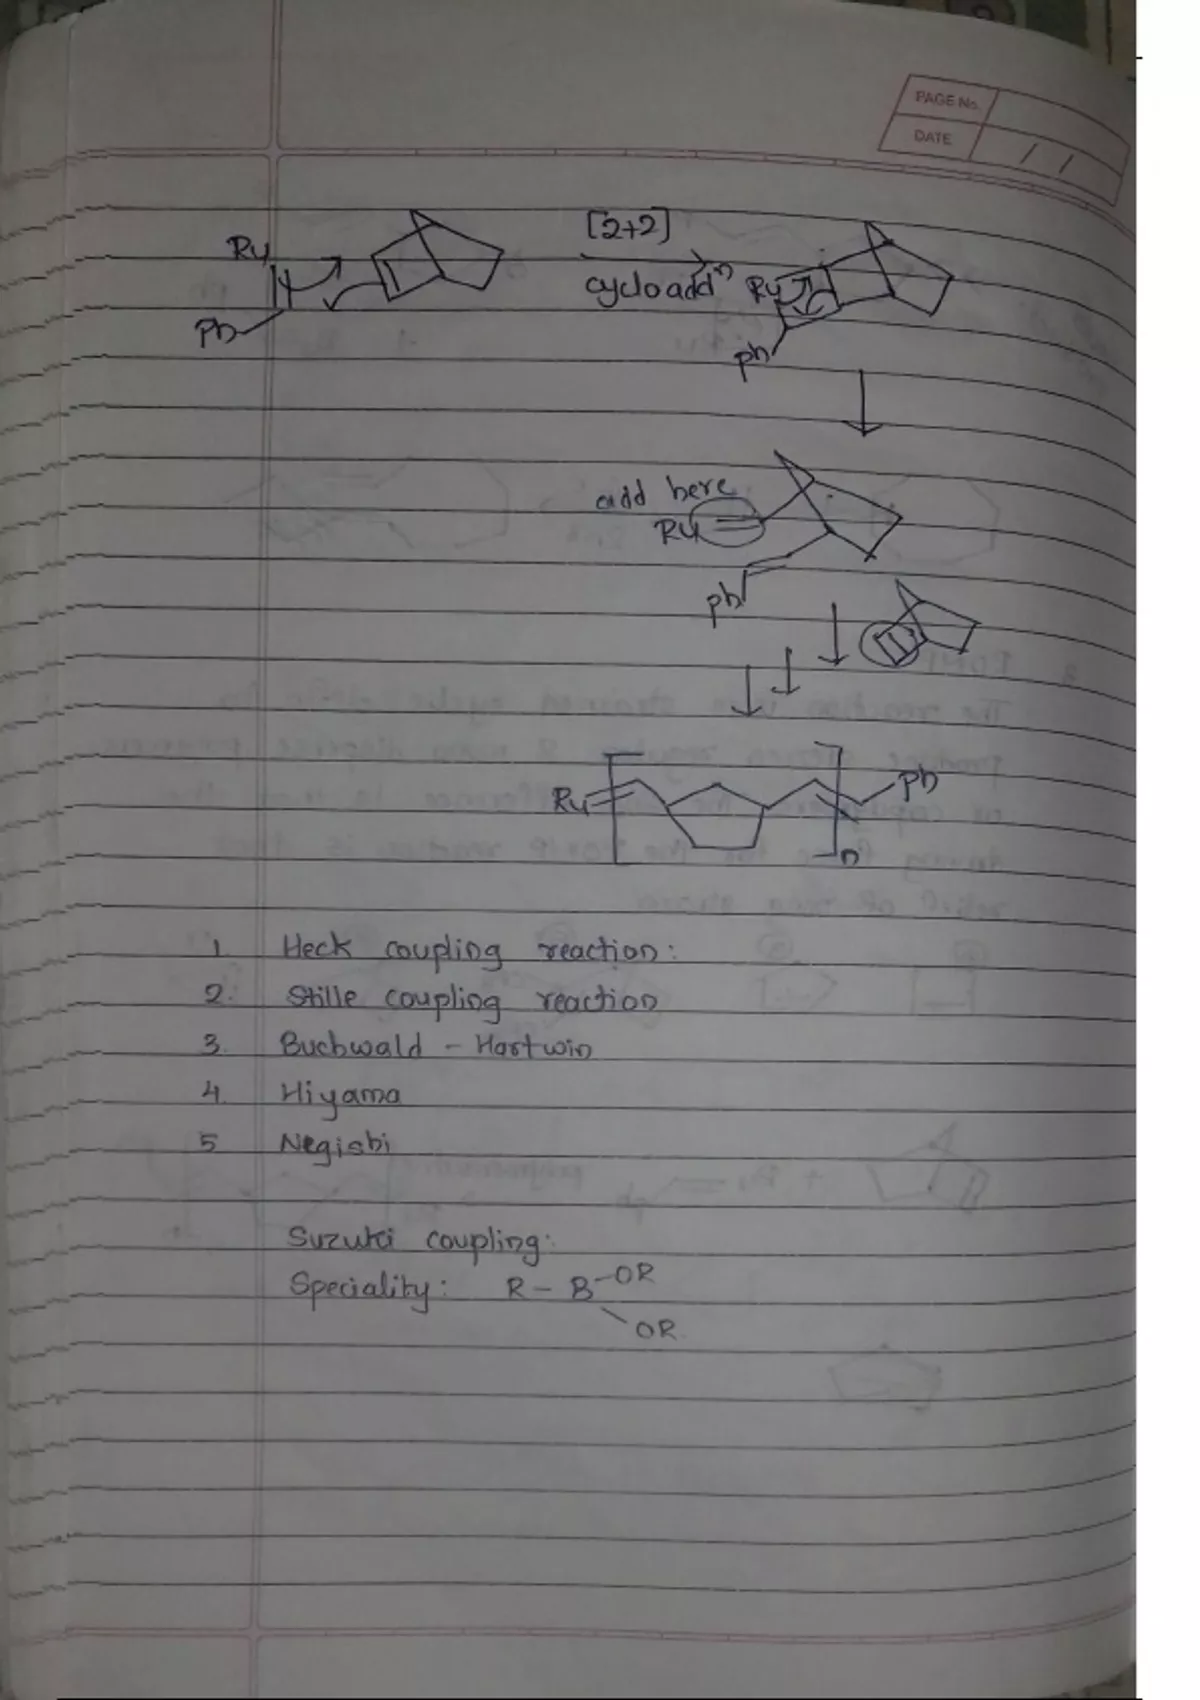 PAGE No.
DATE / /
Ru [2+2]
cycloaddⁿ Ru
Ph
Ph
add here
Ru
Ph
Ru Ph
n
1. Heck coupling reaction:
2. Stille coupling reaction
3. Buchwald - Hartwin
4. Hiyama
5 Negishi
Suzuki coupling:
Speciality: R - B - OR
OR